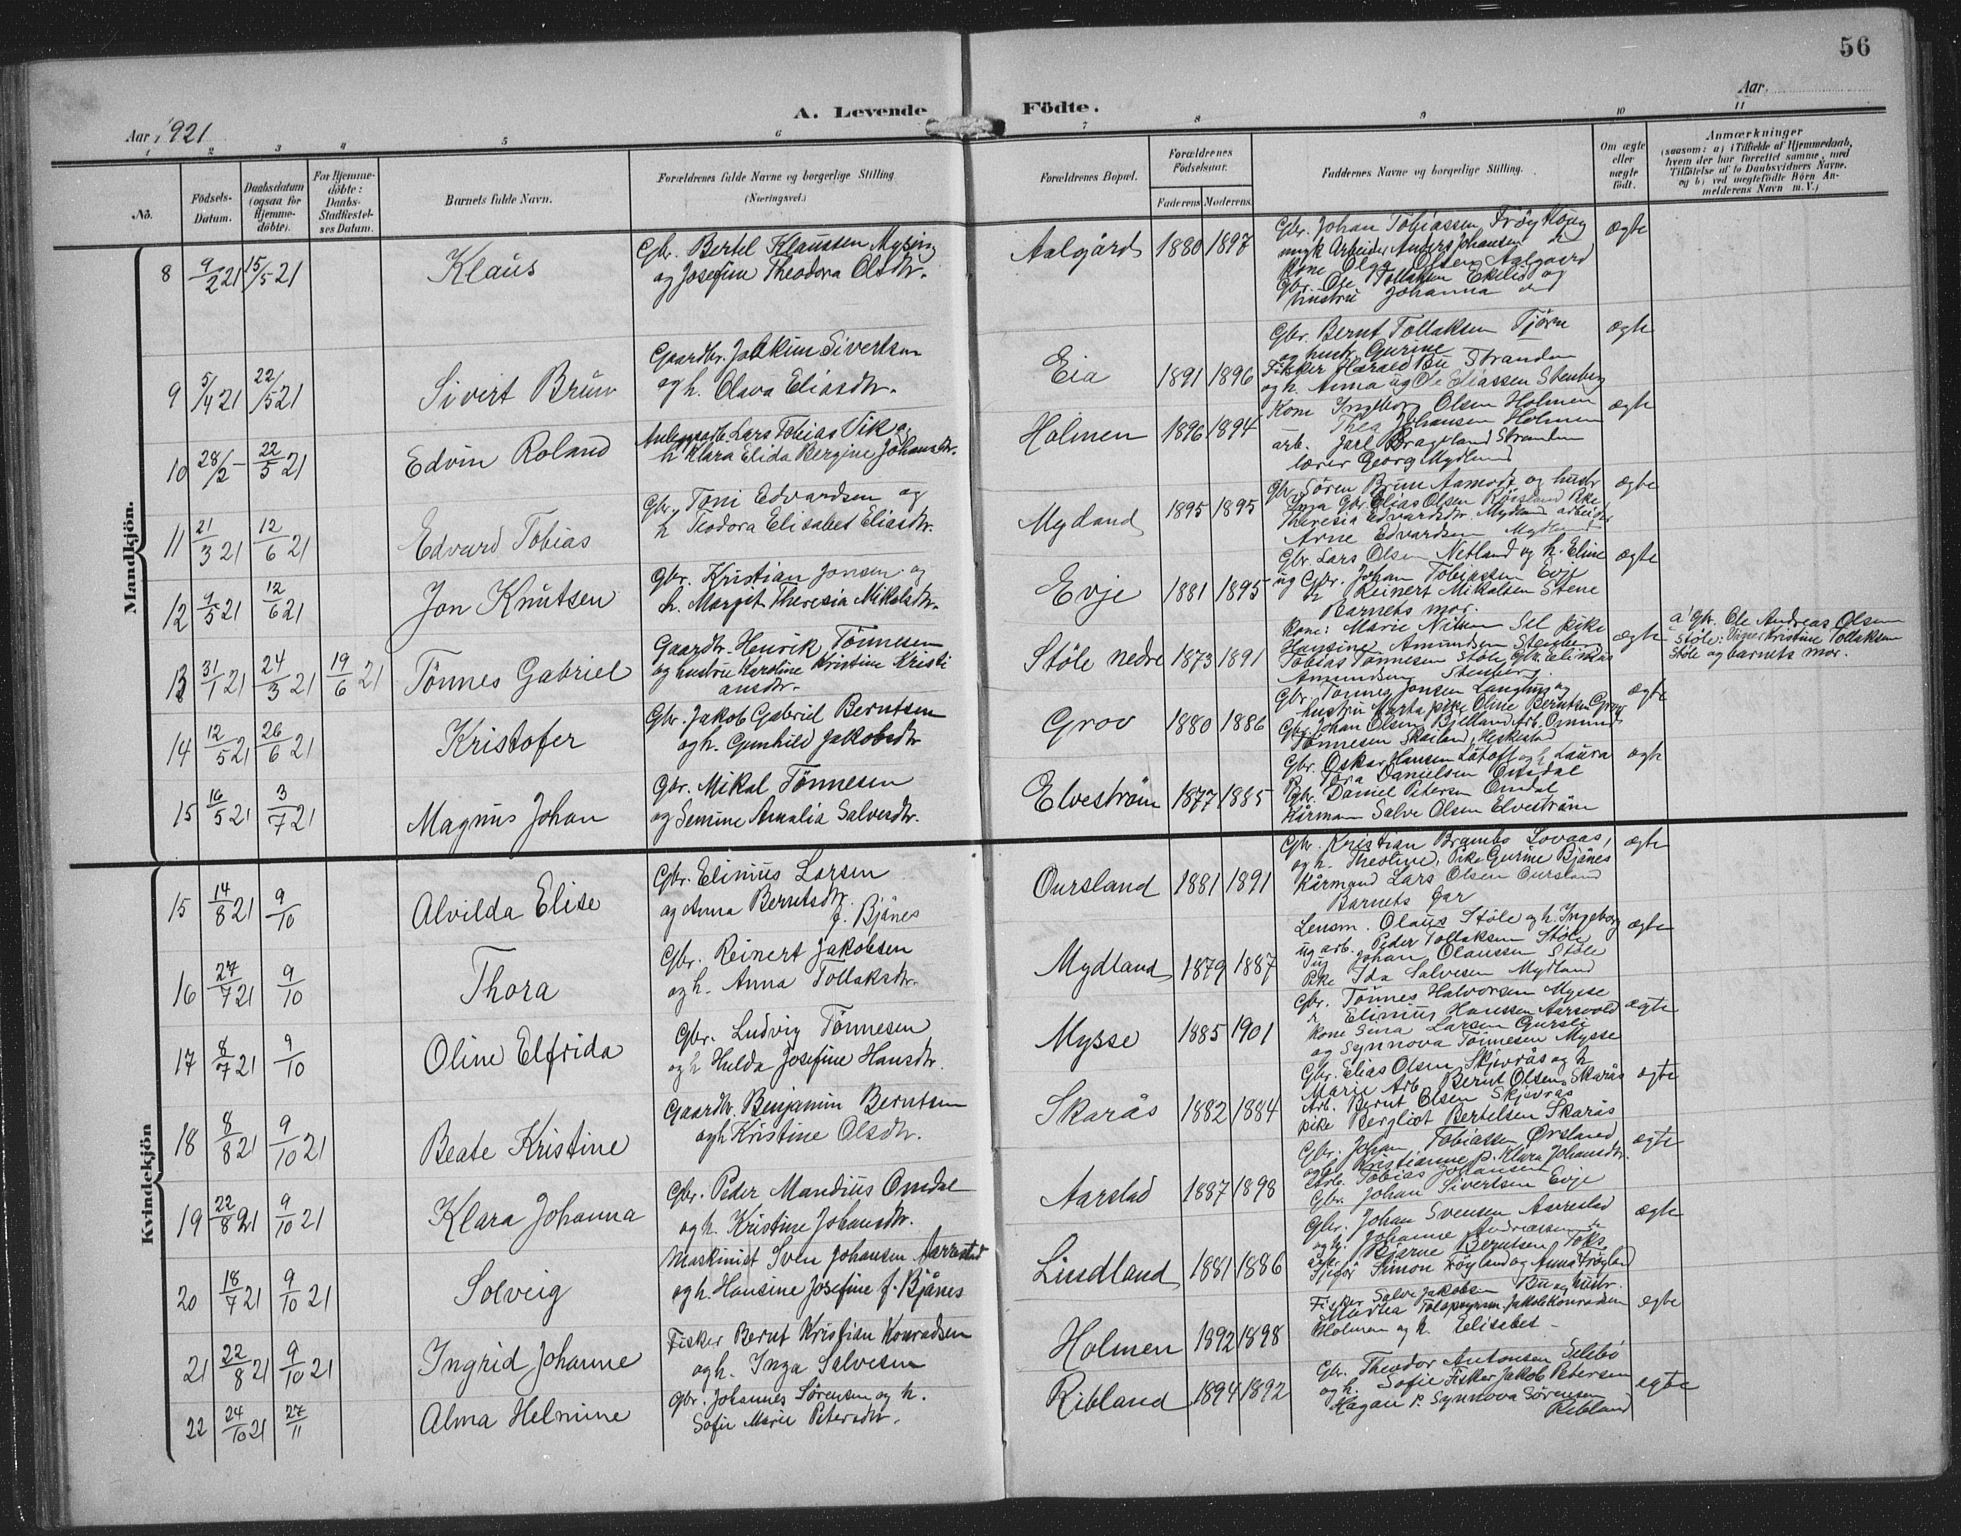 56
A. Levende Födte.
Aar 1921
Aar
1 2 3 4 5 6 7 8 9 10 11
No.
Födsels-Datum.
Daabsdatum (ogsaa for Hjemmedöbte).
For Hjemmedöbte: Daabs-Stadfæstelses Datum.
Barnets fulde Navn.
Forældrenes fulde Navne og borgerlige Stilling. (Næringsvei.)
Forældrenes Bopæl.
Forældrenes Födselsaar.
Faderens Moderens
Faddernes Navne og borgerlige Stilling.
Om ægte eller uægte födt.
Anmærkninger
(saasom: a) i Tilfælde af Hjemmedaab,
hvem der har forrettet samme, med
Tilföielse af to Daabsvidners Navne,
og b) ved uægtefödte Börn An-
melderens Navn m. V.)
Mandkjön.
8 9/2 21 15/5 21 Klaus
Gbr. Bertel Klaussen Mysing
og Josefine Theodora Olsdtr.
Aalgård 1880 1897
Gbr. Johan Tobiassen Frøytlog
myk Arbeider Anders Johansen
Kone Olga Olsen Aalgaard
Gbr. Ole Tollaksen Ekelid og
hustru Johanna
ægte
9 5/4 21 22/5 21 Sivert Brun
Gaardbr. Joakim Sivertsen
og h. Olava Eliasdtr.
Eia 1891 1896
Gbr. Bernt Tollaksen Tjørn
og hustr. Gurine
Fisker Harald Bu Stranden
og h. Anna ug Ole Eliassen Stenberg
ægte
10 28/2 - 22/5 21 Edvin Roland
Lars Tobias Vik og
h Klara Elida Bergine Johansdtr.
Holmen 1896 1894
Kone Ingeborg Olsen Holmen
Thea Johansen Holmen
arb. Jarl Brageland Stranden
lærer Georg Mydland
ægte
11 21/3 21 12/6 21 Edvard Tobias
Gbr. Toni Edvardsen og
h Teodora Elisabet Eliasdtr.
Mydland 1895 1895
Gbr. Søren Brun Aamodt og hustr
Inga Gbr. Elias Olsen Røisland Pike
Theresia Edvardsdtr. Mydland arbeider
Arne Edvardsen Mydland
ægte
12 7/5 21 12/6 21 Jon Knutsen
Gbr. Kristian Jonsen og
h. Margit Theresia Mikalsdtr.
Evje 1881 1895
Gbr. Lars Olsen Netland og h. Eline
ug Gbr. Johan Tobiassen Evje
Reinert Mikalsen Stene
Barnets mor.
ægte
13 31/1 21 24/3 21 19/6 21 Tönnes Gabriel
Gaardbr. Henrik Tönnesen
og hustru Karoline Kristine Kristi
ansdtr.
Støle nedre 1873 1891
Kone: Marie Nilsen Sel pike
Hansine Amundsen Stenberg
Tobias Tønnesen Støle, Gbr. Elinkas
Amundsen Stenberg.
ægte
a) Gbr. Ole Andreas Olsen
Støle: Kristine Tollaksen
Støle og barnets mor.
14 12/5 21 26/6 21 Kristofer
Gbr. Jakob Gabriel Berntsen
og h. Gunhild Jakobsdtr
Grov 1880 1886
Gbr. Tønnes Jonsen Langhus og
hustru Marta pike Oline Berntsen Grov
Gbr. Johan Olsen Bjelland Arb. Omund
Tønnesen Skailand, Heskestad
ægte
15 16/5 21 3/7 21 Magnus Johan
Gbr. Mikal Tönnesen
og Semine Amalia Salvesdtr.
Elvestrøm 1877 1885
Gbr. Oskar Hansen Løtoft og h. Laura
P. Tora Danielsen Omdal
Gbr. Daniel Petersen Omdal
Kårmann Salve Olsen Elvestrøm
ægte
Kvindekjön
15 14/8 21 9/10 Alvilda Elise
Gbr. Elinius Larsen
og Anna Berntsdtr. f. Bjånes
Oursland 1881 1891
Gbr. Kristian Brambo Lovaas,
og h. Theoline, Pike Gurine Bjånes
Kårmand Lars Olsen Oursland
Barnets far
ægte
16 27/7 21 9/10 Thora
Gbr. Reinert Jakobsen
og h. Anna Tollaksdtr.
Mydland 1879 1887
Lensm. Olaus Støle og h. Ingeborg
ug arb. Peder Tollaksen Støle
ug Johan Olaussen Støle
Pike Ida Salvesen Mydland
ægte
17 8/7 21 9/10 Oline Elfrida
Gbr. Ludvig Tönnesen
og h Hulda Josefine Hansdtr.
Mysse 1885 1901
Gbr. Tønnes Halvorsen Mysse
Elinius Hanssen Aarsvold
Kone Sina Larsen Gursli
og Synnova Tønnesen Mysse
ægte
18 8/8 21 9/10 21 Beate Kristine
Gaardbr. Benjamin Berntsen
og h Kristine Olsdtr.
Skarås 1882 1884
Gbr. Elias Olsen Skjevrås og h
Marie Arb. Bernt Olsen Skarås
Arb. Bernt Olsen Skjevrås
pike Bergliot Bertelsen Skarås
ægte
19 22/8 21 9/10 21 Klara Johanna
Gbr. Peder Mandius Omdal
og h. Kristine Johansdtr.
Aarstad 1887 1898
Gbr. Johan Tobiassen Ørsland
og h. Kristianne p. Klara Johansdtr.
Arb. Tobias Johansen
Gbr. Johan Sivertsen Evje
ægte
20 18/7 21 9/10 21 Solveig
Maskinist Sven Johansen Aarrestad
og h. Hansine Josefine f. Bjånes
Lindland 1881 1886
Gbr. Johan Svensen Aarrestad
og h. Johanne Andreassen
arb. Bjarne Berntsen Toks
Simon Frøyland og Anna Frøyland
ægte
21 22/8 21 9/10 21 Ingrid Johanne
Fisker Bernt Kristian Konradsen
og h. Inga Salvesen
Holmen 1892 1898
Fisker Salve Jakobsen Bu og hustr.
Martea Jakob Konradsen
Holmen og h. Elisabet -
ægte
22 24/10 21 27/11 Alma Helmine
Gbr. Johannes Sørensen og h.
Sofie Marie Petersdtr.
Ribland 1894 1892
Gbr. Theodor Antonsen Selebø
og h. Sofie Fisker Jakob Petersen
Hagan P. Synnova Sørensen
Ribland
ægte